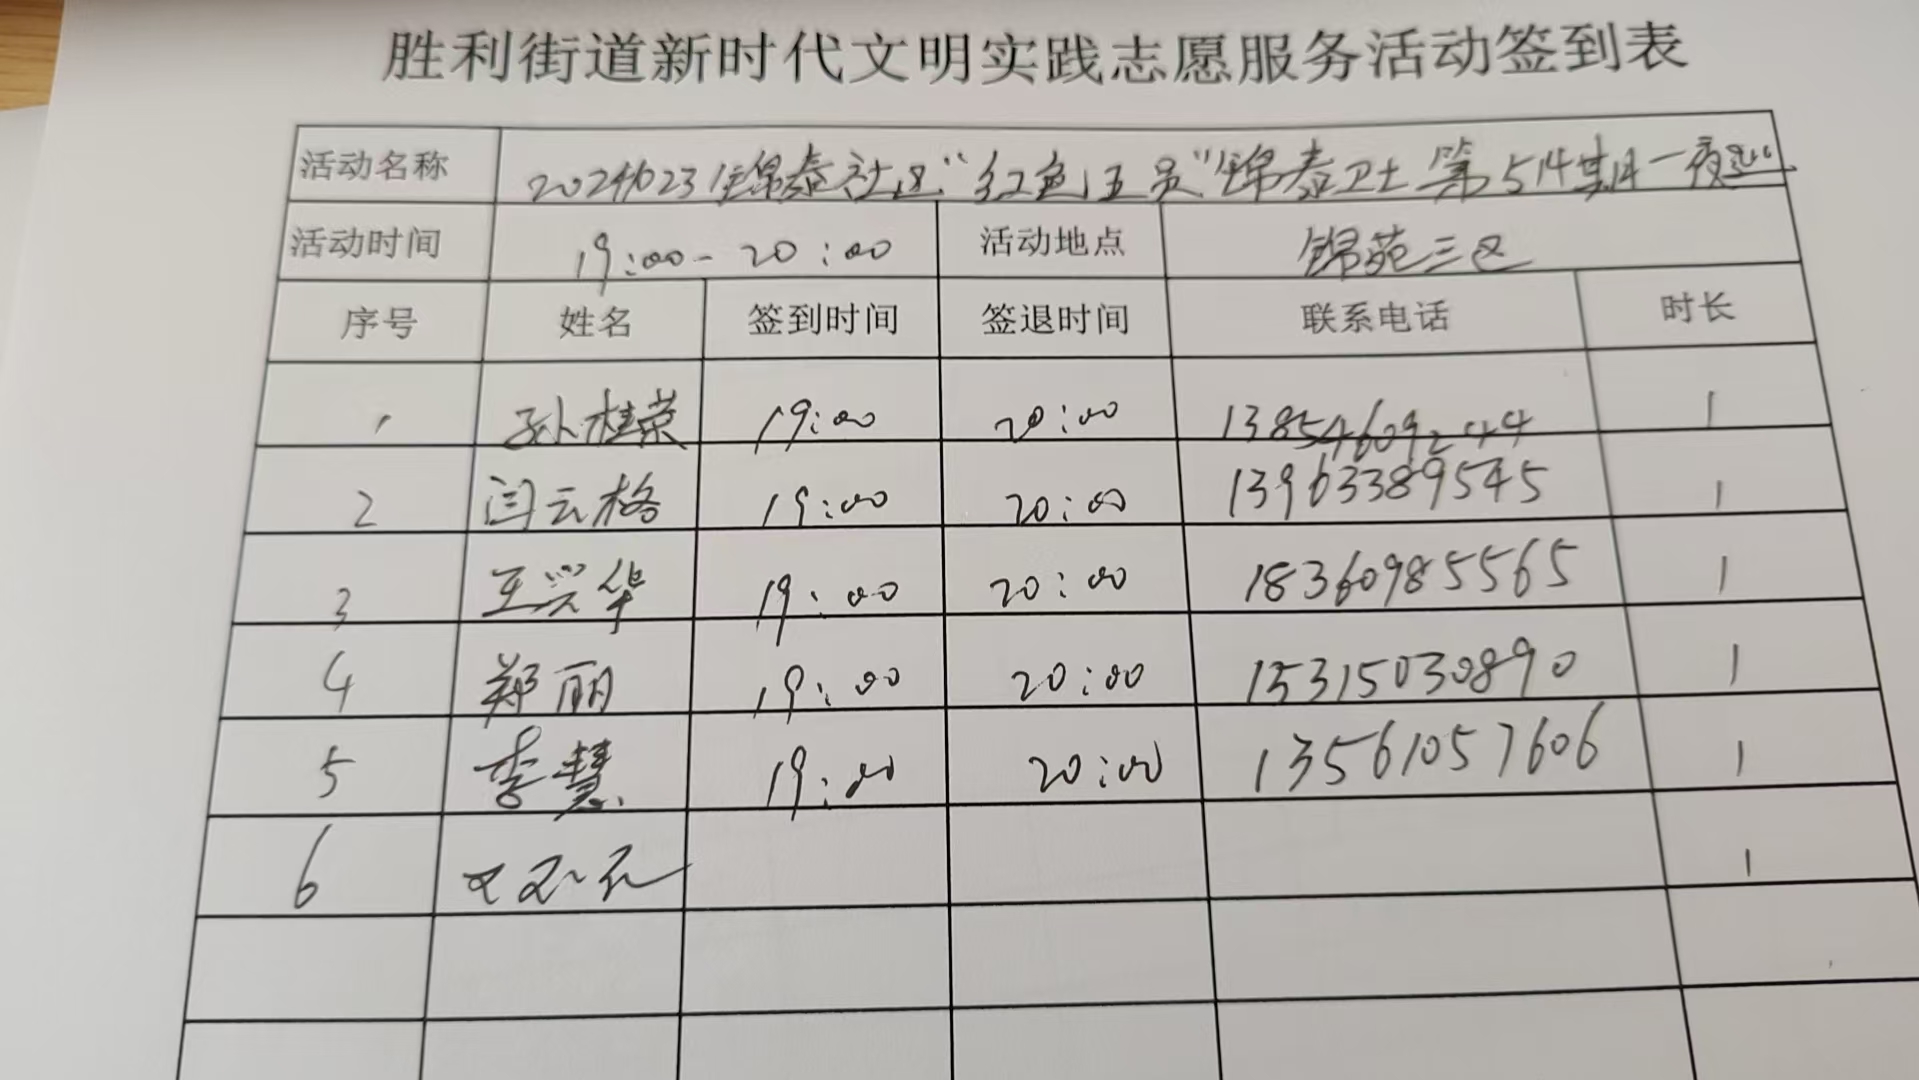 胜利街道新时代文明实践志愿服务活动签到表
活动名称 20241023锦泰社区“红色五员”锦泰卫士第514期一夜巡
活动时间 19:00-20:00 活动地点 锦苑三区
序号 姓名 签到时间 签退时间 联系电话 时长
1 孙桂荣 19:00 20:00 13854609244 1
2 闫云格 19:00 20:00 13963389545 1
3 王兴华 19:00 20:00 18360985565 1
4 郑丽 19:00 20:00 15315030890 1
5 李慧 19:00 20:00 13561057606 1
6 1